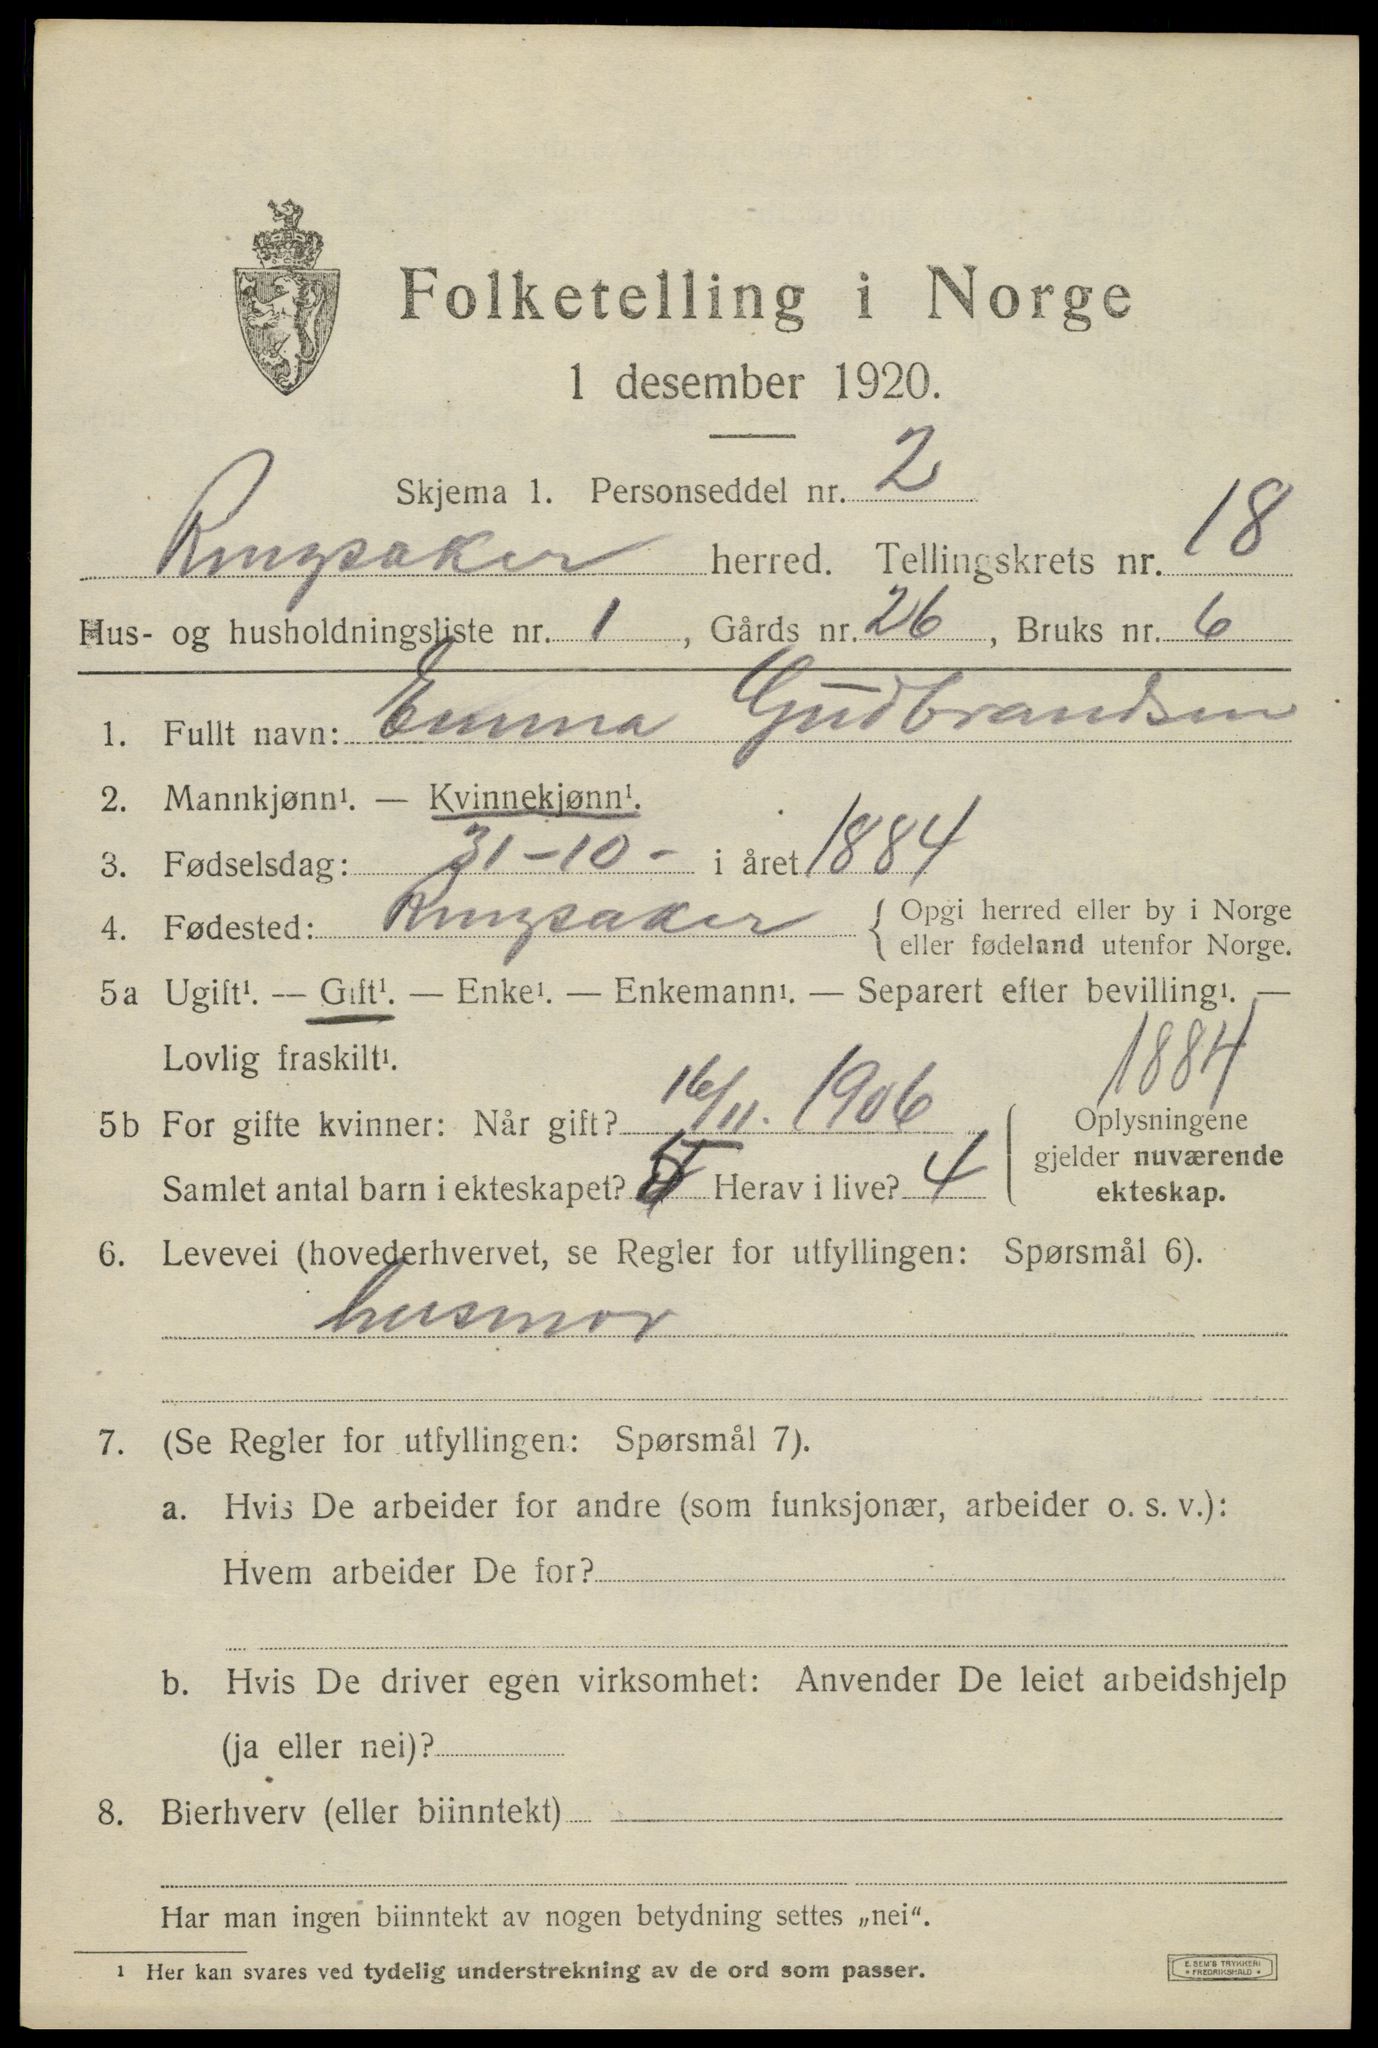 Folketelling i Norge
1 desember 1920.
Skjema 1. Personseddel nr. 2
Ringsaker herred. Tellingskrets nr. 18
Hus- og husholdningsliste nr. 1, Gårds nr. 26, Bruks nr. 6
1. Fullt navn: Emma Gudbrandsen
2. Mannkjønn¹. — Kvinnekjønn¹.
3. Fødselsdag: 31-10- i året 1884
4. Fødested: Ringsaker { Opgi herred eller by i Norge
eller fødeland utenfor Norge.
5a Ugift¹. — Gift¹. — Enke¹. — Enkemann¹. — Separert efter bevilling¹. —
Lovlig fraskilt¹.
1884
5b For gifte kvinner: Når gift? 16/11. 1906
Samlet antal barn i ekteskapet? Herav i live? 4
Oplysningene
gjelder nuværende
ekteskap.
6. Levevei (hovederhvervet, se Regler for utfyllingen: Spørsmål 6).
husmor
7. (Se Regler for utfyllingen: Spørsmål 7).
a. Hvis De arbeider for andre (som funksjonær, arbeider o. s. v.):
Hvem arbeider De for?
b. Hvis De driver egen virksomhet: Anvender De leiet arbeidshjelp
(ja eller nei)?
8. Bierhverv (eller biinntekt)
Har man ingen biinntekt av nogen betydning settes „nei“.
¹ Her kan svares ved tydelig understrekning av de ord som passer.
E. SEM'S TRYKKERI
• FREDRIKSHALD •